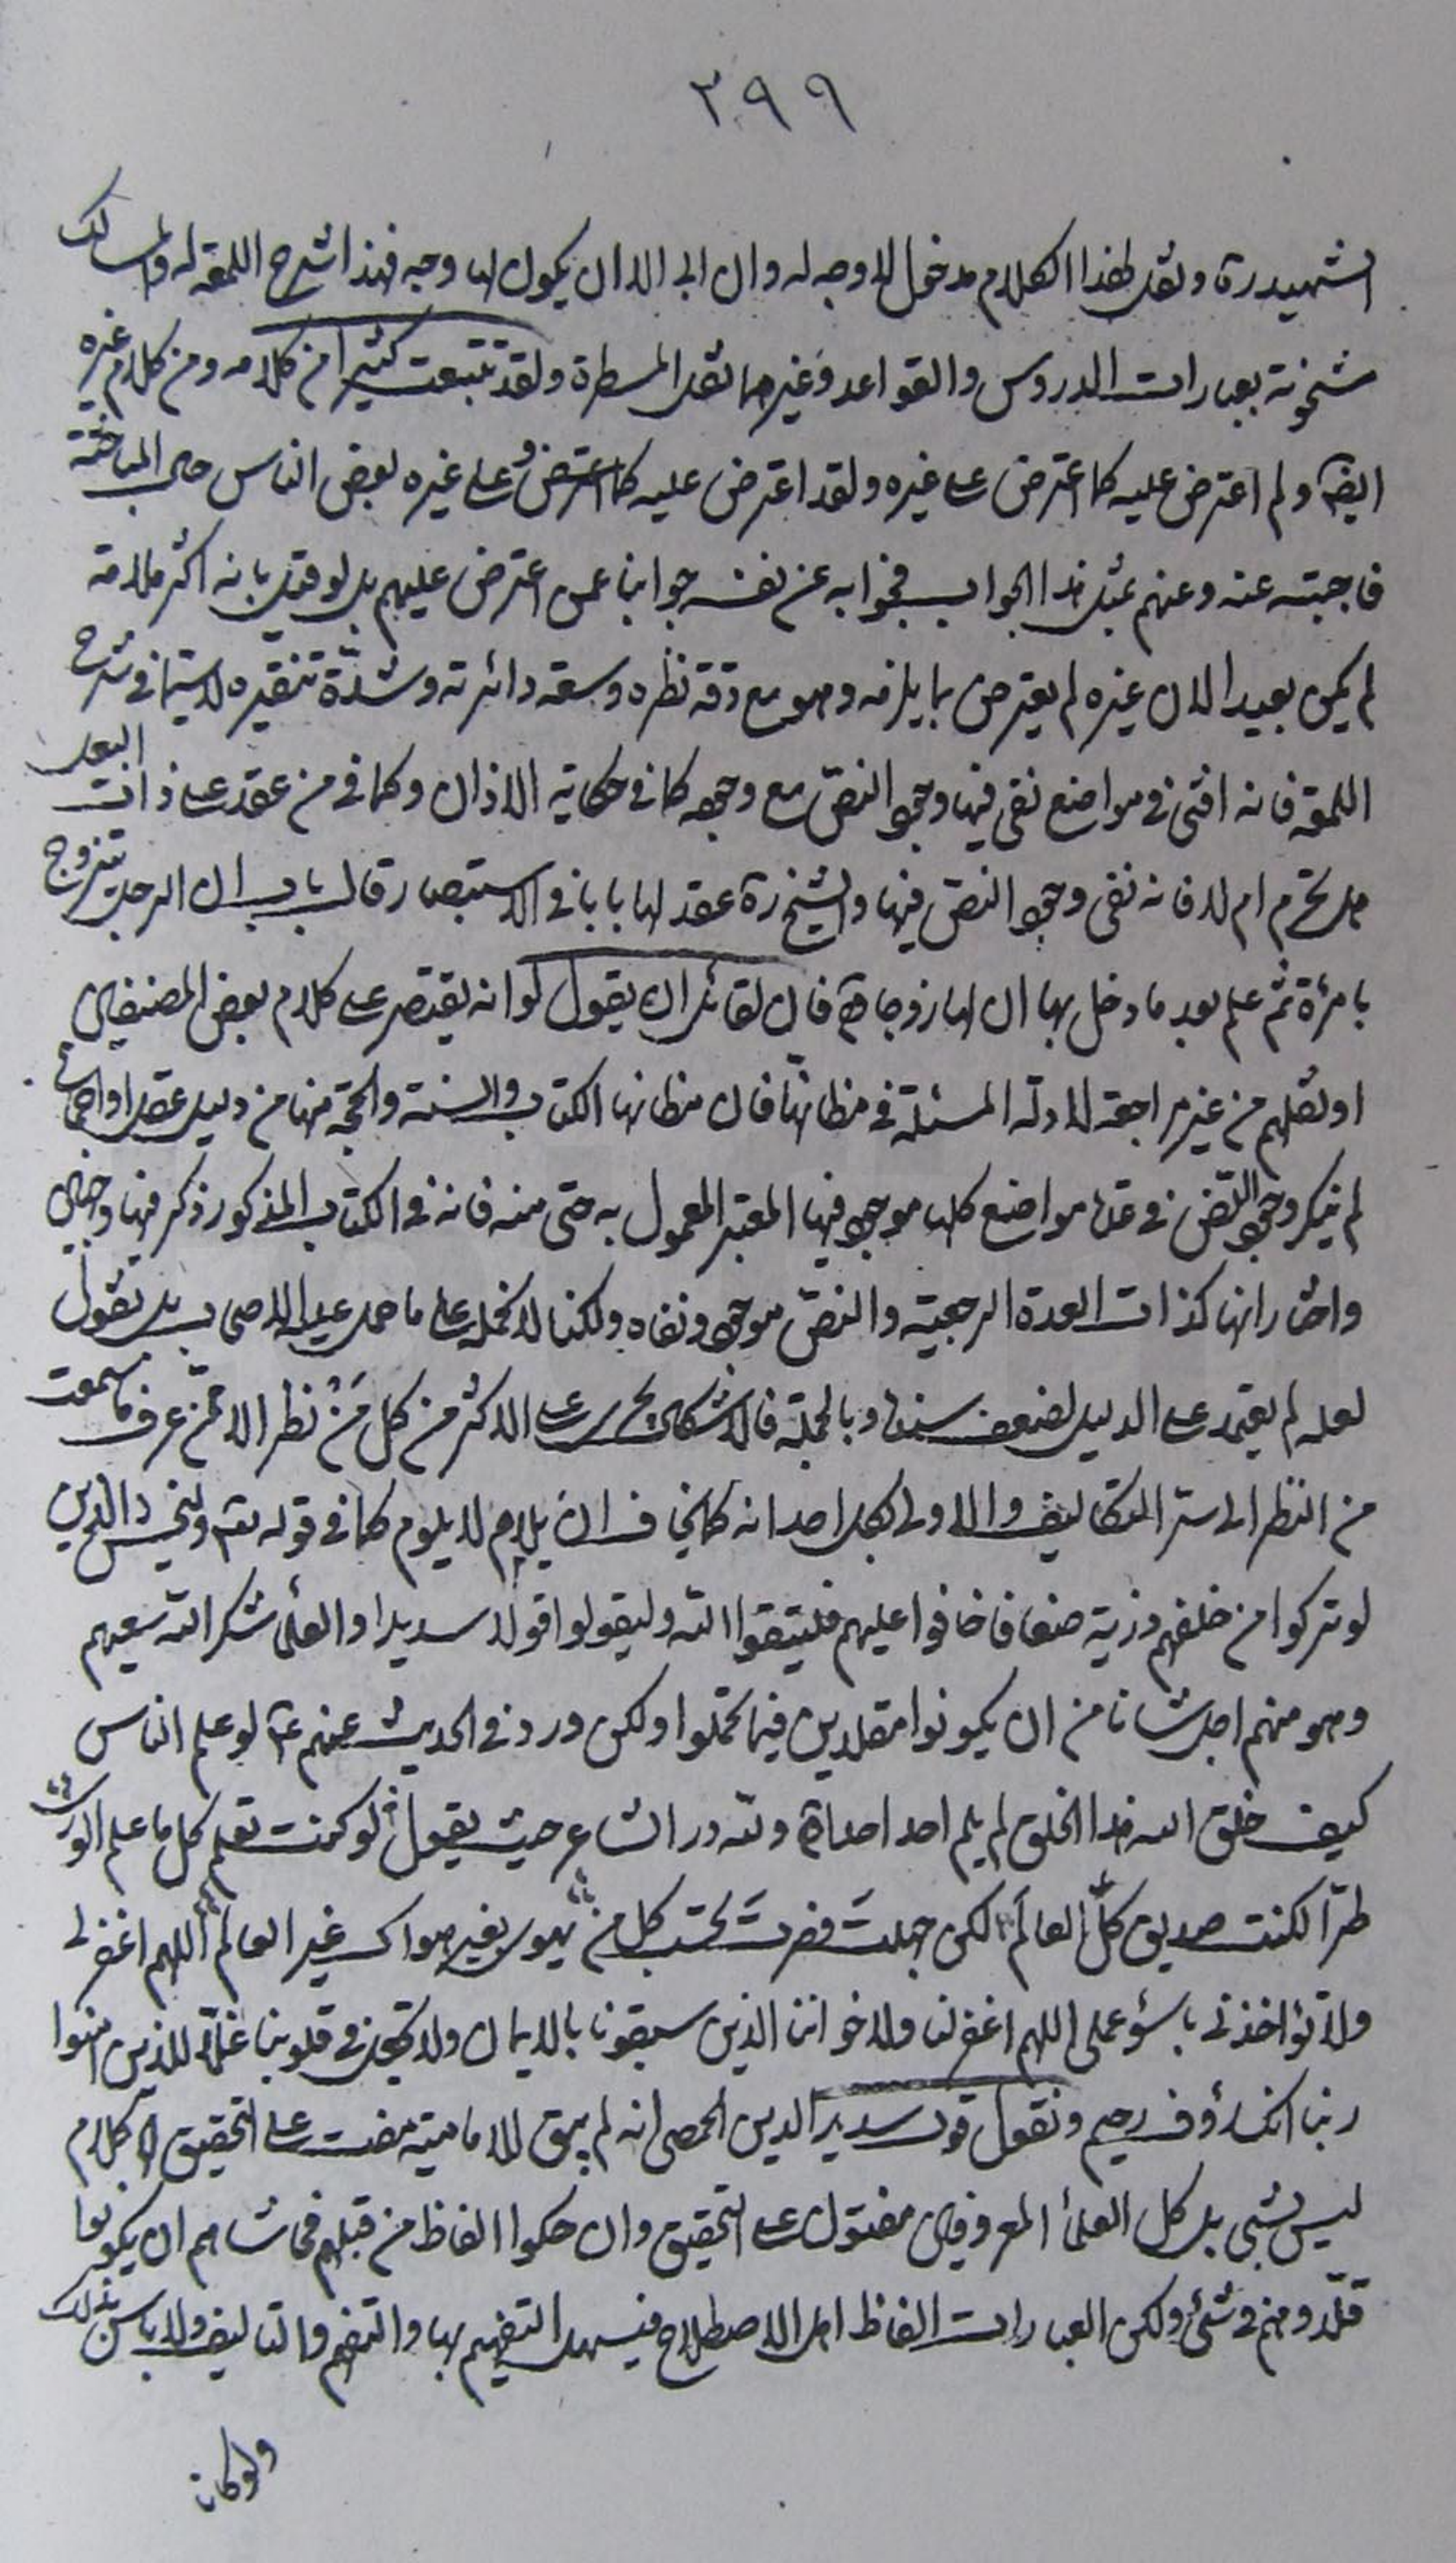 ٣٩٩
الشهيد ره ونقل لهذا الكلام مدخول لا وجه له وان ابى الا ان يكون لها وجه فهذا شرح اللمعة له والمسالك
مشحونة بعبارات الدروس والقواعد وغيرهما نقل المسطرة ولقد تتبعت كثيرا من كلامه ومن كلام غيره
ايضا ولم اعترض عليه كما اعترض على غيره ولقد اعترض عليه كما اعترض على غيره بعض الناس حال المباحثة
فاجبته عنه وعنهم بمثل هذا الجواب فجوابه عن نفسه جوابنا عمن اعترض عليهم بل لو قيل بانه اكثر ملامة
لم يكن بعيدا لان غيره لم يعترض بما يلزمه وهو مع دقة نظره وسعة دائرته وشدة تنقيره لا سيما في شرح
اللمعة فانه افتى في مواضع نفى فيها وجود النص مع وجوده كما في حكاية الاذان وكما في من عقد على ذات البعل
هل تحرم ام لا فانه نفى وجود النص فيها والشيخ ره عقد لها بابا في الاستبصار قال باب ان الرجل يتزوج
بامرئة ثم علم بعد ما دخل بها ان لها زوجا فان لقائل ان يقول لو انه يقتصر على كلام بعض المصنفين
او نقلهم من غير مراجعة لادلة المسئلة في مظانها فان مظانها الكتاب والسنة والحجة منها من دليل عقل او اجماع
لم ينكر وجود النص في عدة مواضع كلها موجود فيها المعتبر المعمول به حتى منه فانه في الكتاب المذكور ذكر فيها وجهين
واختار انها كذات العدة الرجعية والنص موجود ونفاه ولكنا لا نحمله على ما حمل عليه الاصحاب بل نقول
لعله لم يعتمد على الدليل لضعف سنده وبالجملة فالاشكال يجرى على الاكثر من كل من نظر الا ممن عرف ما سمعت
من النظر الى ستر التكاليف والاولى لكل احد انه كما يخاف ان يلام لا يلوم كما في قوله تعالى وليخش الذين
لو تركوا من خلفهم ذرية ضعافا خافوا عليهم فليتقوا الله وليقولوا قولا سديدا والعلماء شكر الله سعيهم
وهو منهم اجل شانا من ان يكونوا مقلدين فيما تحملوا ولكن ورد في الحديث عنهم ع لو علم الناس
كيف خلق الله هذا الخلق لم يلم احد احدا ولله در الشاعر حيث يقول لو كنت تعلم كل ما علم الورى
طرّا لكنت صديق كلّ العالَم لكن جهلتَ فصرتَ تحسب كل من يهوى بغير هواك غير العالم اللهم اغفر لى
ولا تؤاخذنى باسؤ عملى اللهم اغفر لنا ولاخواننا الذين سبقونا بالايمان ولا تجعل في قلوبنا غلّا للذين امنوا
ربنا انك رؤف رحيم ونقول قول سديد الدين الحمصى انه لم يبق للامامية مفت على التحقيق كلام
ليس بشئ بل كل العلماء المعروفين مفتون على التحقيق وان حكوا الفاظ من قبلهم فحاشاهم ان يكونوا
قلّدوهم في شئ ولكن العبارات الفاظ اهل الاصطلاح فيسهل التفهيم بها والتفهم والتاليف ولا باس بذلك
ولو كان